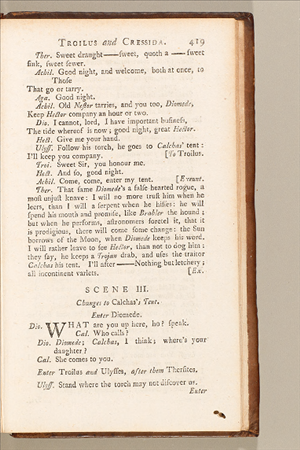 TROILUS and CRESSIDA. 419
Ther. Sweet draught——sweet, quoth a——sweet
sink, sweet sewer.
Achil. Good night, and welcome, both at once, to
Those
That go or tarry.
Aga. Good night.
Achil. Old Nestor tarries, and you too, Diomede,
Keep Hector company an hour or two.
Dio. I cannot, lord, I have important business,
The tide whereof is now; good night, great Hector.
Hect. Give me your hand.
Ulyss. Follow his torch, he goes to Calchas' tent:
I'll keep you company. [To Troilus.
Troi. Sweet Sir, you honour me.
Hect. And so, good night.
Achil. Come, come, enter my tent. [Exeunt.
Ther. That same Diomede's a false hearted rogue, a
most unjust knave: I will no more trust him when he
leers, than I will a serpent when he hisses: he will
spend his mouth and promise, like Brabler the hound;
but when he performs, astronomers foretel it, that it
is prodigious, there will come some change: the Sun
borrows of the Moon, when Diomede keeps his word.
I will rather leave to see Hector, than not to dog him:
they say, he keeps a Trojan drab, and uses the traitor
Calchas his tent. I'll after——Nothing but letchery;
all incontinent varlets. [Ex.
SCENE III.
Changes to Calchas's Tent.
Enter Diomede.
Dio. WHAT are you up here, ho? speak.
Cal. Who calls?
Dio. Diomede; Calchas, I think; where's your
daughter?
Cal. She comes to you.
Enter Troilus and Ulysses, after them Thersites.
Ulyss. Stand where the torch may not discover us.
Enter